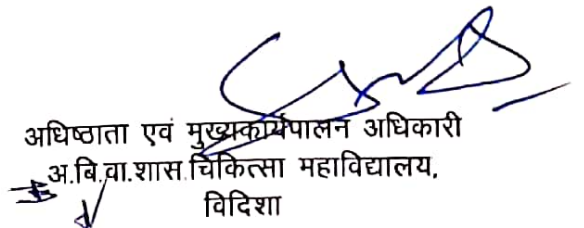 अधिष्ठाता एवं मुख्यकार्यपालन अधिकारी
अ.बि.वा.शास.चिकित्सा महाविद्यालय,
विदिशा